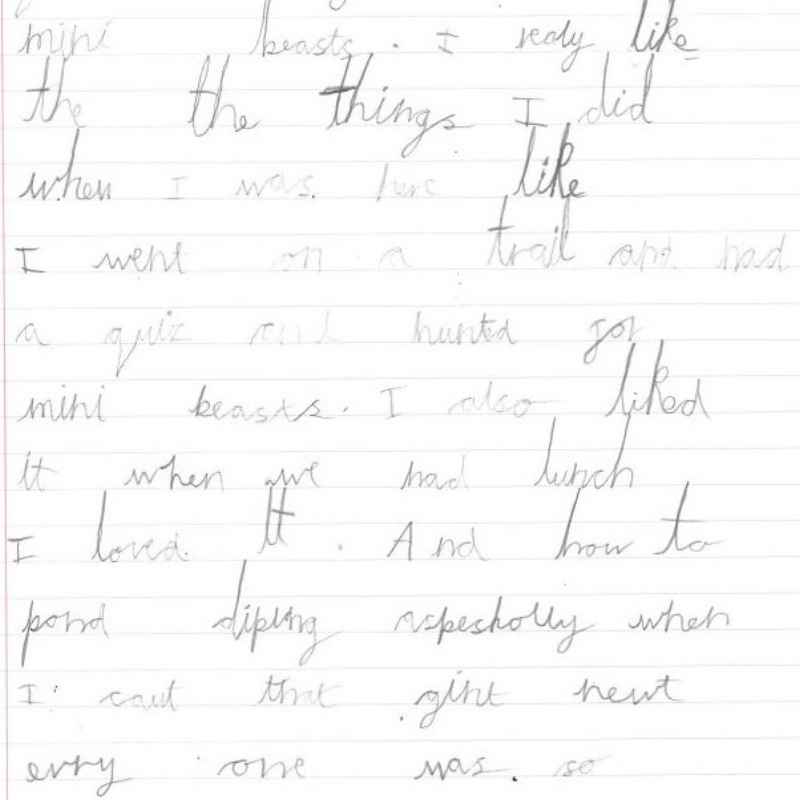 mini beasts. I realy like
the the things I did
when I was. here like
I went on a trail and had
a quiz and hunted for
mini beasts. I also liked
it when we had lunch
I loved. It. And how to
pond dipling aspesholly when
I caut that gint newt
evry one was. so